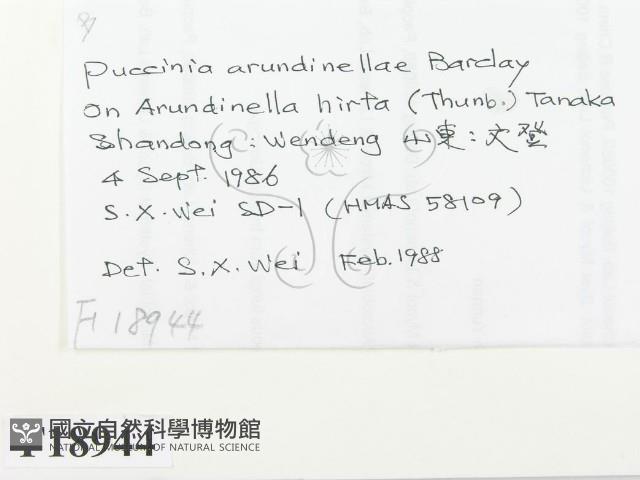 Puccinia arundinellae Barclay
on Arundinella hirta (Thunb.) Tanaka
Shandong : Wendeng 山東 : 文登
4 Sept. 1986
S. X. Wei SD-1 (HMAS 58109)
Det. S. X. Wei Feb. 1988
F 18944
國立自然科學博物館
NATIONAL MUSEUM OF NATURAL SCIENCE
F18944